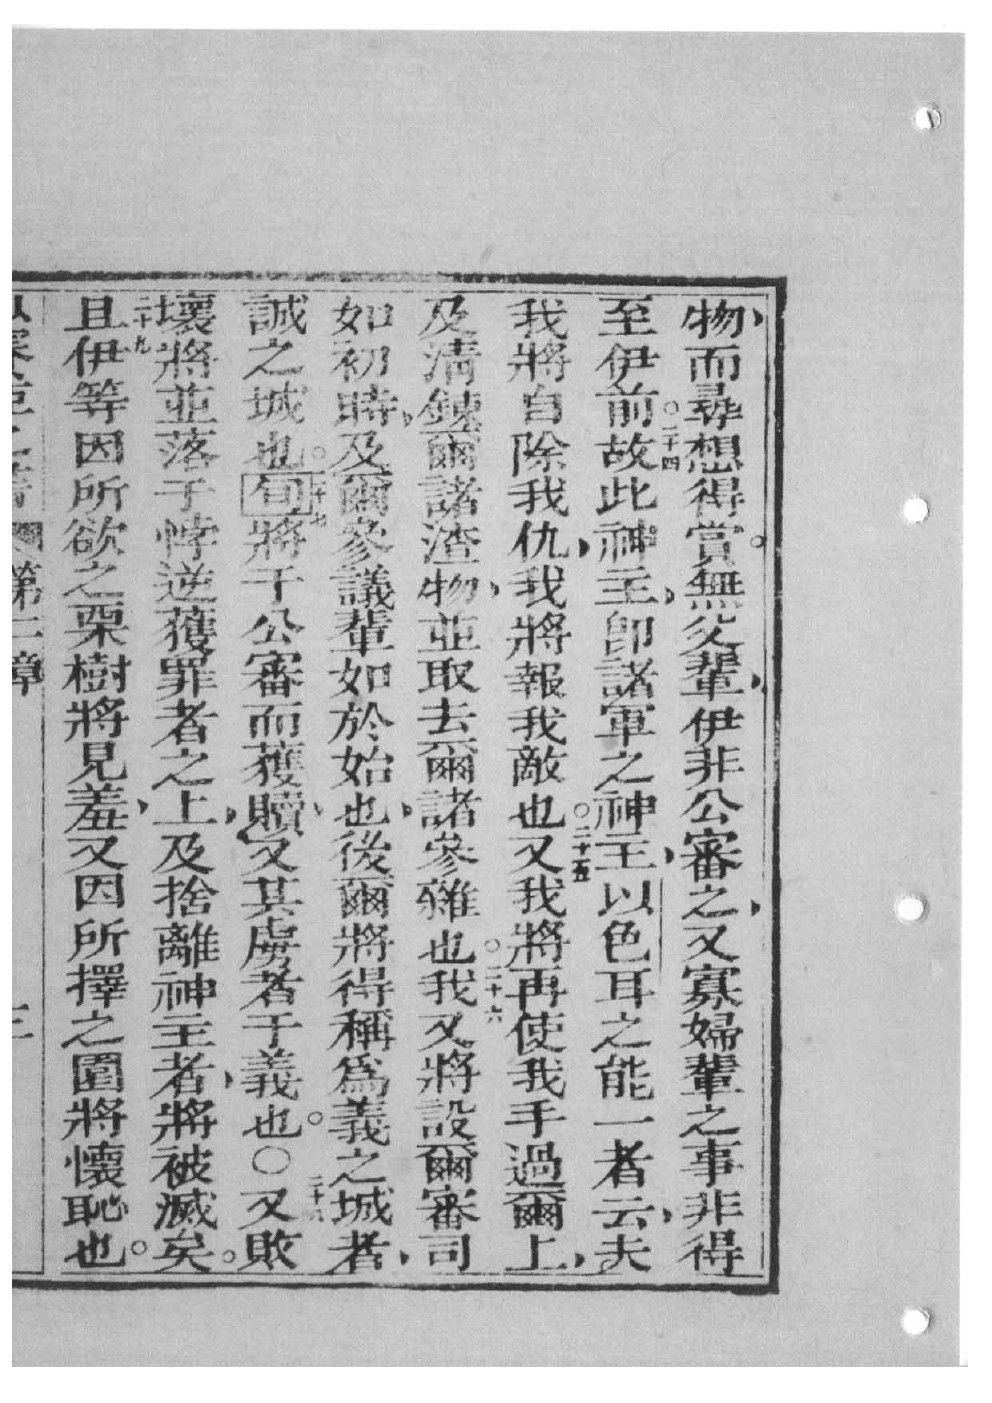 物、而尋想得賞。無父輩、伊非公審之、又寡婦輩之事非得
至伊前。○二十四故此神主、即諸軍之神主、以色耳之能一者云、夫
我將自除我仇、我將報我敵也。○二十五又我將再使我手過爾上、
及淸鍊爾諸渣物、並取去爾諸參雜也。○二十六我又將設爾審司
如初時、及爾參議輩如於始也、後爾將得稱爲義之城者、
誠之城也。二十七旬將于公審而獲贖、又其虜者于義也。○二十八又敗
壞將並落于悖逆獲罪者之上、及捨離神主者、將被滅矣。
二十九且伊等因所欲之栗樹將見羞、又因所擇之園將懷恥也。
第一章 三